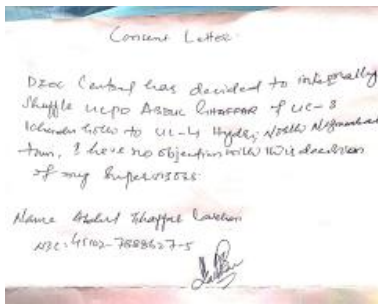 Consent Letter.
DEOC Central has decided to internally
Shuffle UCPO ABDUL GHAFFAR of UC-3
to UC-4 Hydri, North Nazimabad
town, I have no objection with this decision
of my Supervisors.
Name Abdul Ghaffar
NIC: 45102-7888627-5